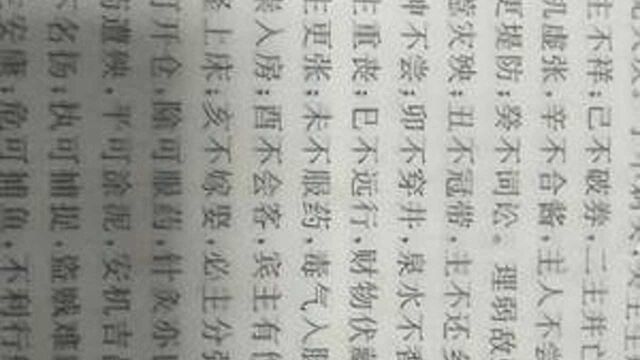 主不祥；己不破券，二主并亡
机虚张，辛不合酱，主人不会
更堤防；癸不词讼。理弱敌
灾殃；丑不冠带，主不还
神不尝；卯不穿井，泉水不
主重丧；巳不远行，财物伏
主更张；未不服药，毒气入
祟入房；酉不会客，宾主有
上床；亥不嫁娶，必主分
可开仓，除可服药，针灸亦
方遭殃，平可涂泥，安机吉
不名扬；执可捕捉，盗贼难
安康；危可捕鱼，不利行